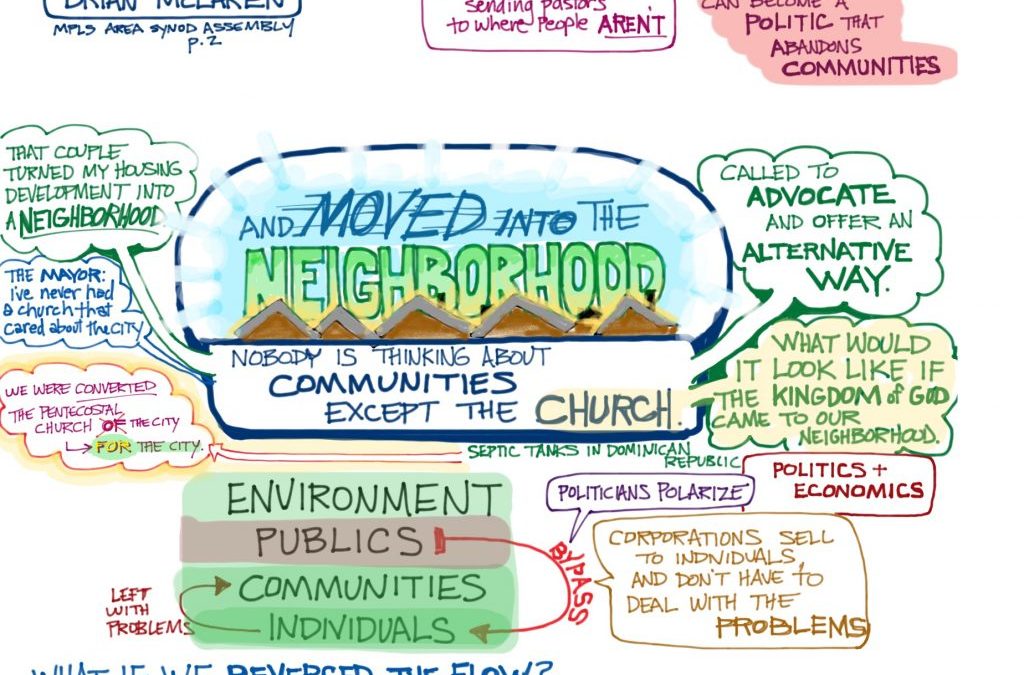 BRIAN McLAREN
MPLS AREA SYNOD ASSEMBLY
p.2
sending pastors
to where People AREN'T
CAN BECOME A
POLITIC THAT
ABANDONS
COMMUNITIES
THAT COUPLE
TURNED MY HOUSING
DEVELOPMENT INTO
A NEIGHBORHOOD
THE MAYOR:
i've never had
a church that
cared about the CITY
WE WERE CONVERTED
THE PENTECOSTAL
CHURCH OF THE CITY
FOR THE CITY.
AND MOVED INTO THE
NEIGHBORHOOD
NOBODY IS THINKING ABOUT
COMMUNITIES
EXCEPT THE CHURCH.
CALLED TO
ADVOCATE
AND OFFER AN
ALTERNATIVE
WAY.
WHAT WOULD
IT LOOK LIKE IF
THE KINGDOM of GOD
CAME TO OUR
NEIGHBORHOOD.
SEPTIC TANKS IN DOMINICAN
REPUBLIC
POLITICS +
ECONOMICS
POLITICIANS POLARIZE
ENVIRONMENT
PUBLICS
COMMUNITIES
INDIVIDUALS
BYPASS
LEFT
WITH
PROBLEMS
CORPORATIONS SELL
TO INDIVIDUALS,
AND DON'T HAVE TO
DEAL WITH THE
PROBLEMS
WHAT IF WE REVERSED THE FLOW?